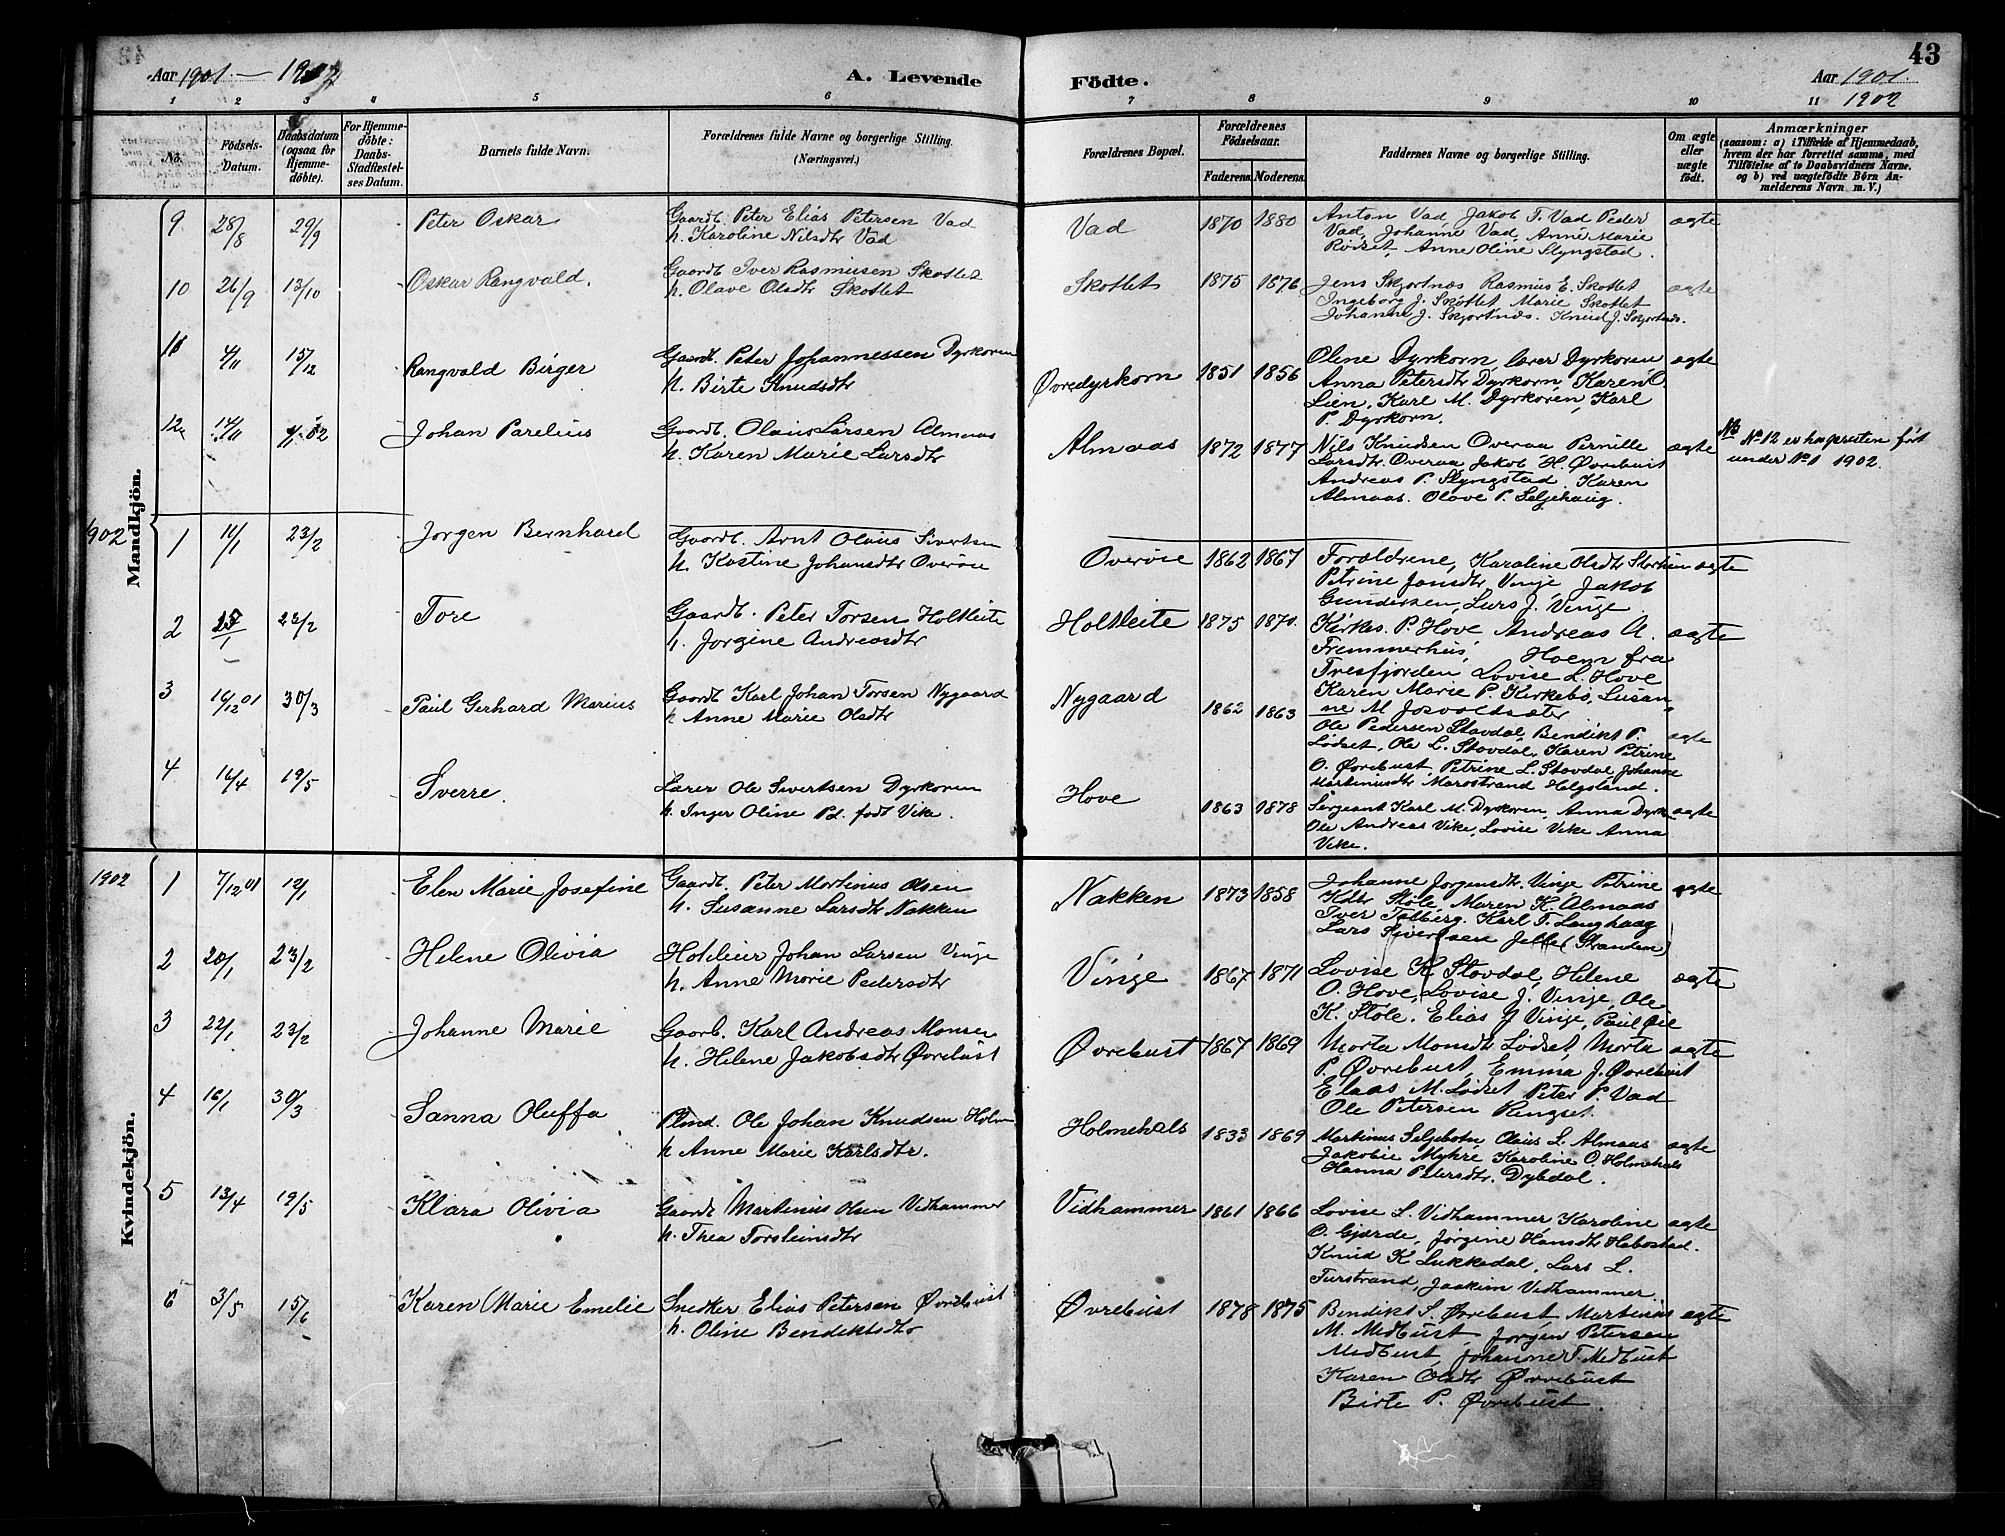 43
Aar 1901. – 1902
A. Levende Födte.
Aar 1901.
1902
1 2 3 4 5 6 7 8 9 10 11
No.
Födsels-Datum.
Daabsdatum (ogsaa for Hjemme-döbte).
For Hjemme-döbte: Daabs-Stadfæstel-ses Datum.
Barnets fulde Navn.
Forældrenes fulde Navne og borgerlige Stilling. (Næringsvei.)
Forældrenes Bopæl.
Forældrenes Födselsaar.
Faderens. Moderens.
Faddernes Navne og borgerlige Stilling.
Om ægte eller uægte födt.
Anmærkninger
(saasom: a) i Tilfælde af Hjemmedaab, hvem der har forrettet samme, med Tilföielse af to Daabsvidners Navne, og b) ved uægtefödte Börn An-melderens Navn m. V.)
Mandkjön.
9 28/8 29/9 Peter Oskar
Gaardb. Peter Elias Petersen Vad
h. Karoline Nilsdtr Vad
Vad 1870 1880
Anton Vad, Jakob T. Vad Peder
Vad, Johanne Vad, Anne Marie
Rödset, Anne Oline Slyngstad.
ægte
10 26/9 13/10 Oskar Rangvald.
Gaardb Iver Rasmusen Skotlet
h. Olave Olsdtr Skotlet
Skotlet 1875 1876
Jens Skjortnæs Rasmus E. Skotlet
Ingeborg J. Skotlet Marie Skotlet
Johanne J. Skjortnæs. Knud J. Skjortnæs.
ægte
11 4/11 15/12 Rangvald Birger
Gaardb. Peter Johannessen Dyrkoren
h. Birte Knudsdtr
Øvredyrkorn 1851 1856
Oline Dyrkorn, lærer Dyrkoren
Anna Petersdtr Dyrkorn, Karen O.
Lien, Karl M. Dyrkoren, Karl
P. Dyrkorn.
ægte
12 14/11 Johan Parelius
Gaardb. Olaus Larsen Almaas
h. Karen Marie Larsdtr
Almaas 1872 1877
Nils Knudsen Overaa Pernille
Larsdtr. Overaa Jakob H. Øvrebust
Andreas P. Slyngstad. Karen
Almaas. Olave P. Seljehaug.
ægte
Nb No 12 er hos presten fört
under No 1 1902.
1902
1 11/1 23/2 Jorgen Bernhard
Gaardb. Arnt Olaus Sivertsen
h. Kastine Johansdtr Overöie
Overöie 1862 1867
Forældrene, Karaline Olsdtr
Petrine Jansdtr Vinje, Jakob
Gundersen, Lars J. Vinge.
ægte
2 23/2 Tore
Gaardb. Peter Torsen Holtleite
h. Jorgine Andreasdtr
Holtleite 1875 1870.
Kirkes. P. Hove Andreas A.
Fremmerhus, Hoem fra
Tresfjorden Lovise L. Hove
Karen Marie P. Kirkebö, Susan-
ne M
ægte
3 16/12 01 30/3 Paul Gerhard Marius
Gaardb Karl Johan Torsen Nygaard
h Anne Marie Olsdtr
Nygaard 1862 1863
Ole Pedersen Stavdal, Bendikt P.
Lödset, Ole L. Stavdal, Karen Petrine
O. Øvrebust Petrine L. Stavdal Johanne
Martinusdtr Marostrand Helgsland.
ægte
4 16/4 19/5 Sverre.
Lærer Ole Sivertsen Dyrkoren
h. Inger Oline Pd. född Vike.
Hove 1863 1878
Sergeant Karl M. Dyrkoren, Anna Dyrk
Ole Andreas Vike, Lovise Vike Anna
Vike.
ægte
Kvindekjön.
1902
1 7/12 01 12/1 Elen Marie Josefine
Gaardb. Peter Martinus Olsen
h. Susanne Larsdtr Nakken
Nakken 1873 1858
Johanne Jorgensdtr. Vinje Petrine
Kdtr Stöle, Maren K. Almaas
Iver Tolberg. Karl T. Langhaag
Lars Sivertsen Jelle (Stranden)
ægte
2 20/1 23/2 Helene Olivia
Johan Larsen Vinje
h. Anne Marie Pedersdtr
Vinge 1867 1871
Lovise K. Stavdal, Helene
O. Hove, Lovise J. Vinge, Ole
K. Stöle. Elias J Vinge, Paul Öie
ægte
3 22/1 23/2 Johanne Marie
Gaardb. Karl Andreas Monsen
h. Helene Jakobsdtr Øvrebust
Øvrebust 1867 1869
Marta Monsdtr Lödset, Marta
P. Øvrebust, Emma J. Øvrebust
Elaas M. Lödset Peter P. Vad
Ole Petersen Ringset.
ægte
4 16/1 30/3 Sanna Oluffa
Ole Johan Knudsen Holm
h Anne Marie Karlsdtr.
Holmehals 1833 1869
Martinus Seljebotn Olaus L. Almaas
Jakobie Myhre Karoline O. Holmehals
Hanna Petersdtr. Dybdal.
ægte
5 13/4 19/5 Klara Olivia
Gaardb Martinus Olsen Vidhammer
h. Thea Torsteinsdtr
Vidhammer 1861 1866
Lovise L. Vidhammer Karoline
O. Gjærde, Jörgine Hansdtr Habostad.
Knud K Lukkedal, Lars L.
Turstrand, Joakim Vidhammer.
ægte
6 3/5 15/6 Karen Marie Emelie
Snedker Elias Petersen Øvrebust
h. Oline Bendiktsdtr
Øvrebust 1878 1875
Bendikt S. Øvrebust Martinus
M. Medbust Jorgen Petersen
Medbust, Johanne T. Medbust
Karen Olsdtr Øvrebust
Birte P. Øvrebust.
ægte